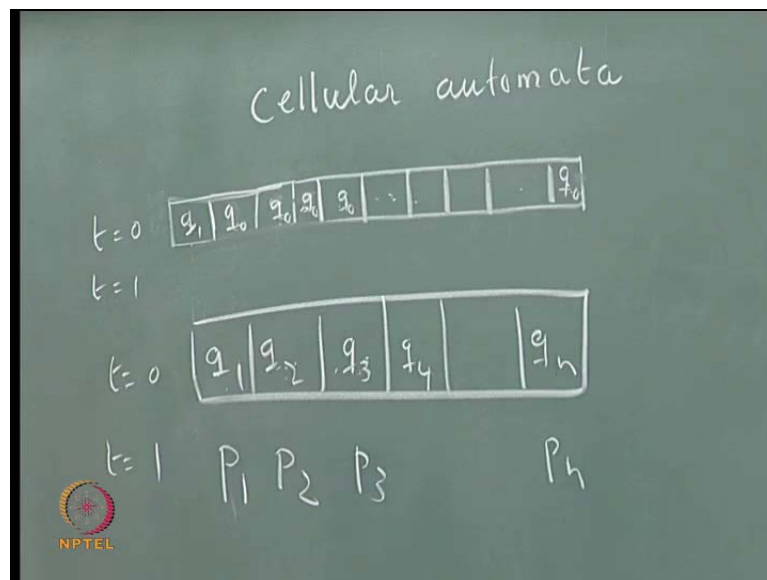 Cellular automata
t=0 q₁ q₀ q₀ q₀ q₀ ... . q₀
t=1
t=0 q₁ q₂ q₃ q₄ qₙ
t=1 P₁ P₂ P₃ Pₙ
NPTEL